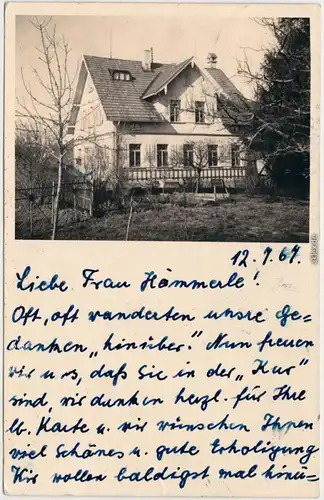 12.9.67.
Liebe Frau Hämmerle!
Oft, oft wanderten unsre Ge-
danken „hinüber." Nun freuen
wir uns, daß Sie in der „Kur"
sind, wir danken herzl. für Ihre
lb. Karte u. wir wünschen Ihnen
viel Schönes u. gute Erholigung
Wir wollen baldigst mal hinü-